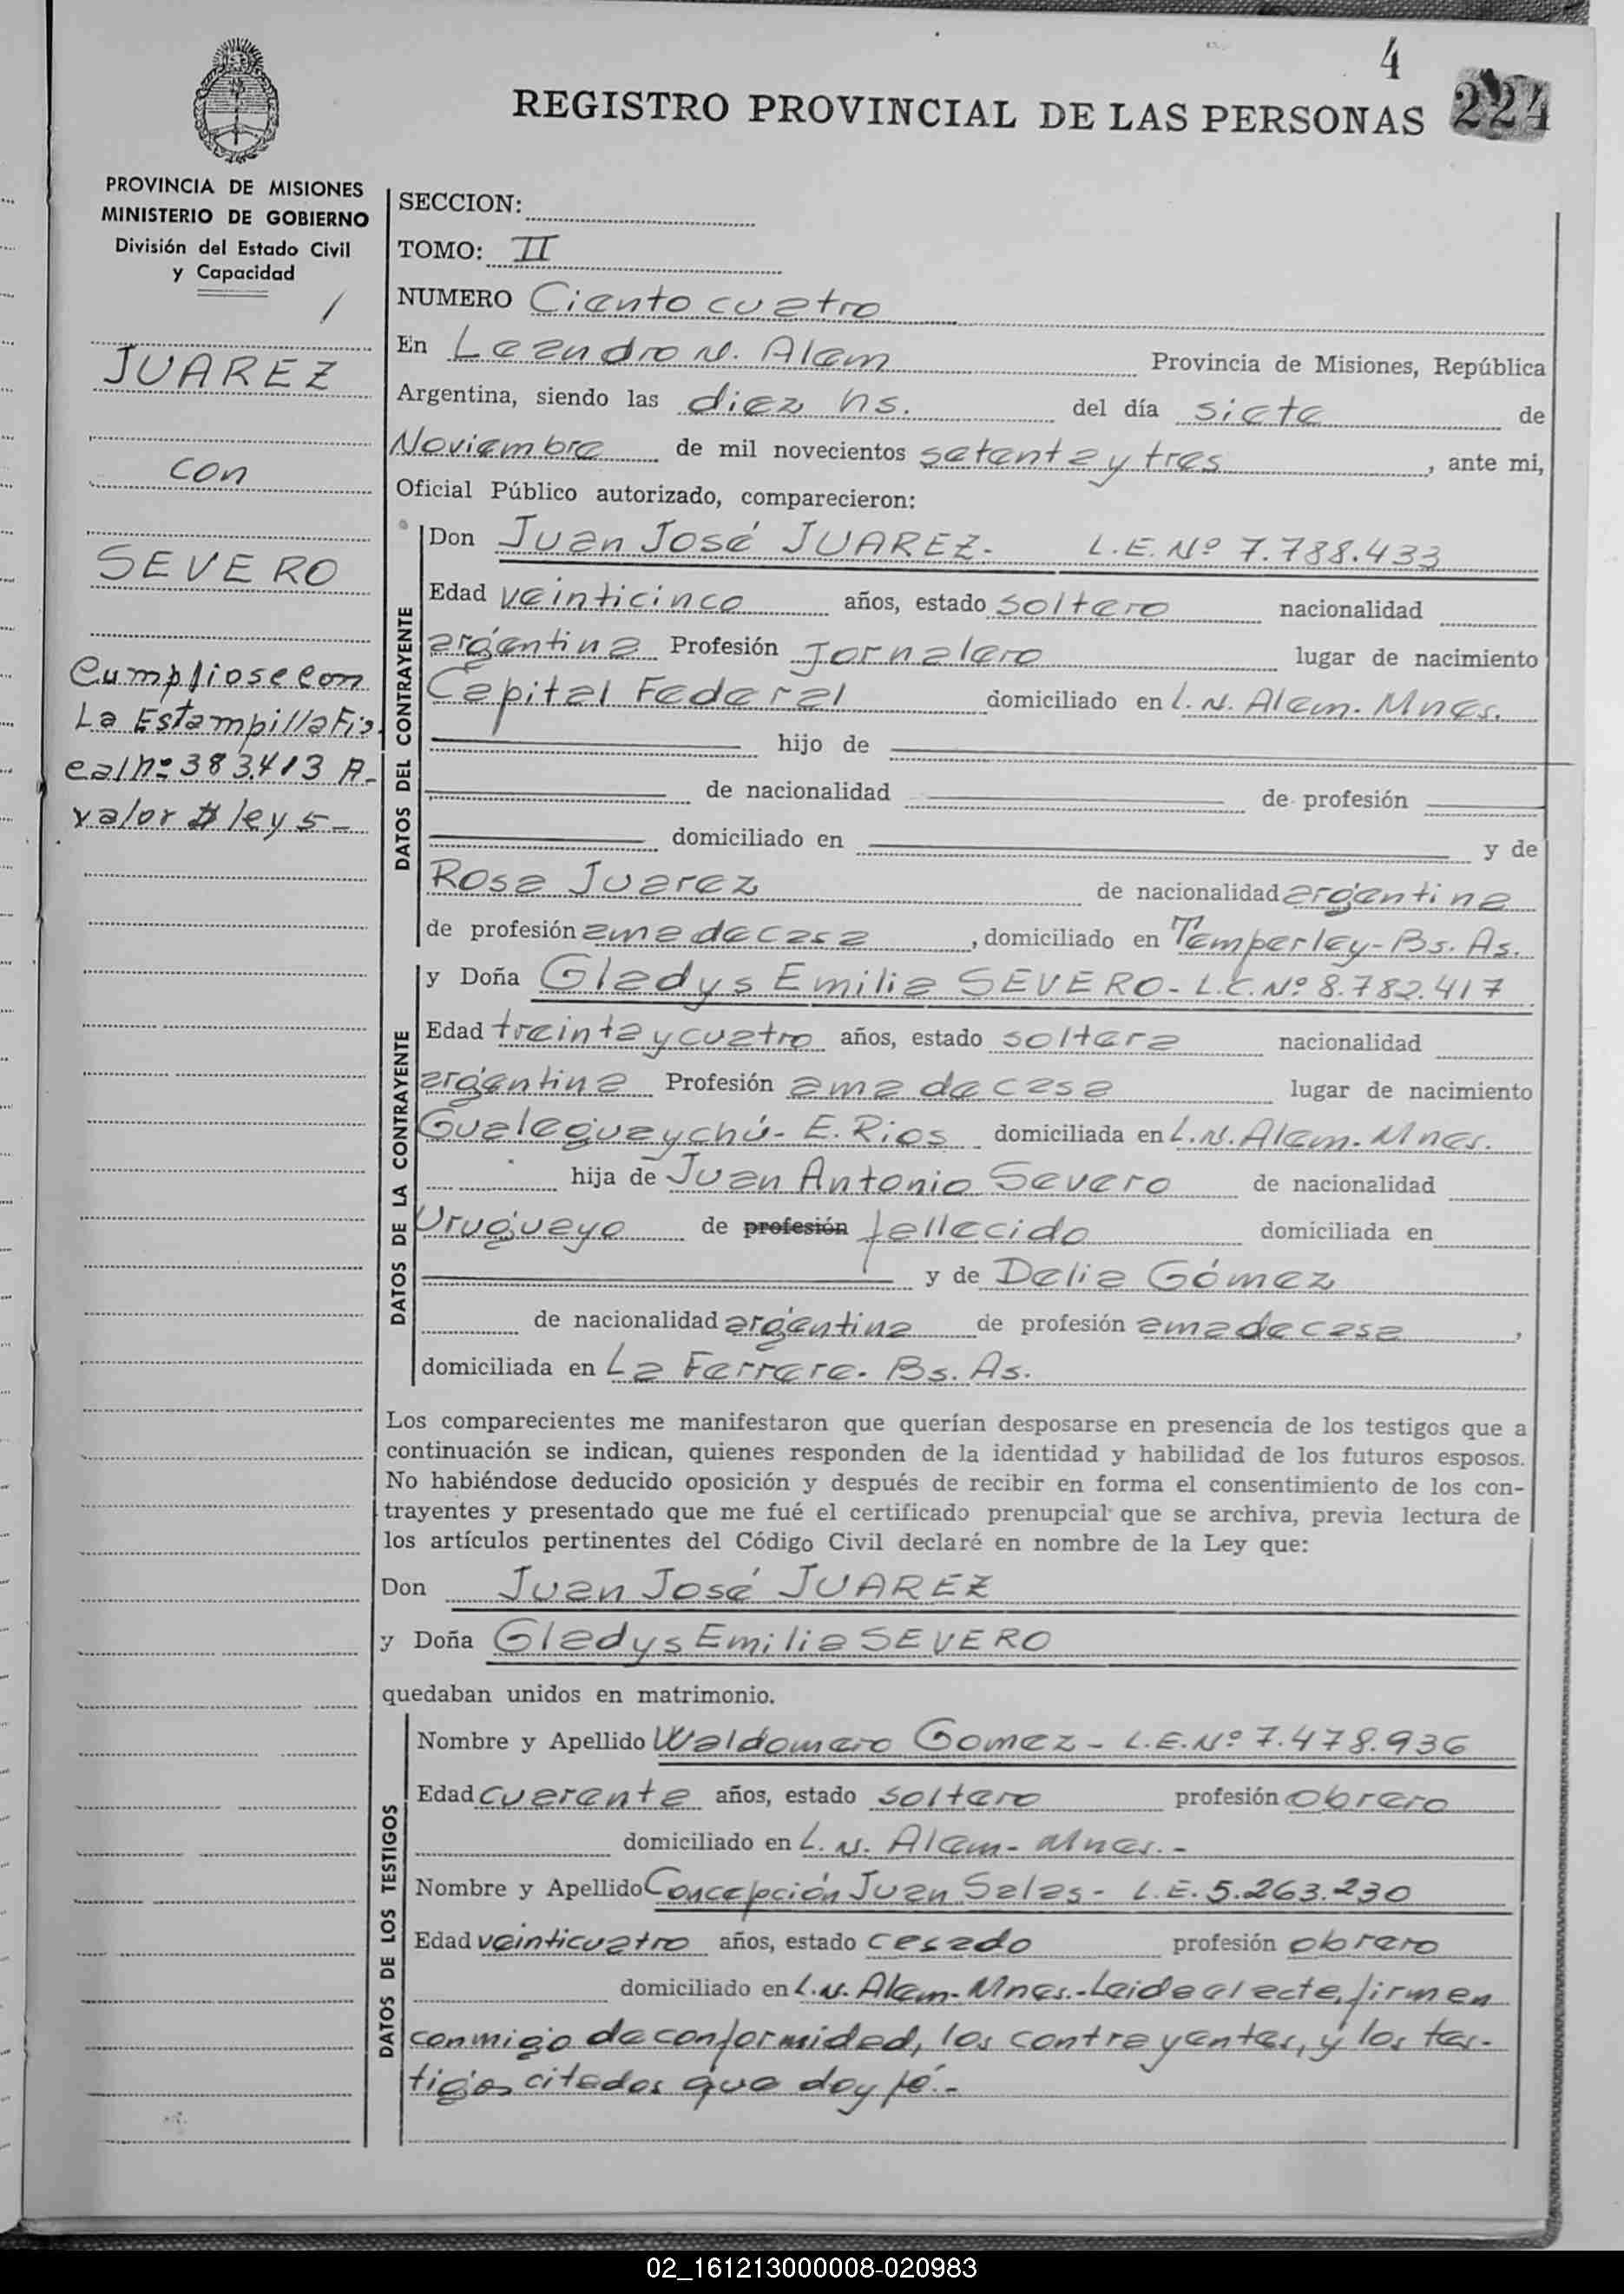 4
REGISTRO PROVINCIAL DE LAS PERSONAS 224
PROVINCIA DE MISIONES
MINISTERIO DE GOBIERNO
División del Estado Civil
y Capacidad
JUAREZ
con
SEVERO
Cumpliose con
La Estampilla Fis
cal nº 383.413 A-
valor $ ley 5-
SECCION:
TOMO: II
NUMERO Ciento cuatro
En Leandro N. Alem Provincia de Misiones, República
Argentina, siendo las diez hs. del día siete de
Noviembre de mil novecientos setenta y tres, ante mi,
Oficial Público autorizado, comparecieron:
DATOS DEL CONTRAYENTE
Don Juan José JUAREZ- L.E.Nº 7.788.433
Edad veinticinco años, estado soltero nacionalidad
argentina Profesión Jornalero lugar de nacimiento
Capital Federal domiciliado en L.N. Alem- Mnes.
hijo de
de nacionalidad de profesión
domiciliado en y de
Rosa Juarez de nacionalidad argentina
de profesión ama de casa, domiciliado en Temperley- Bs. As.
DATOS DE LA CONTRAYENTE
y Doña Gladys Emilia SEVERO- L.C.Nº 8.782.417
Edad treinta y cuatro años, estado soltera nacionalidad
argentina Profesión ama de casa lugar de nacimiento
Gualeguaychú- E. Rios domiciliada en L.N. Alem- Mnes.
hija de Juan Antonio Severo de nacionalidad
Uruguayo de profesión fallecido domiciliada en
y de Delia Gómez
de nacionalidad argentina de profesión ama de casa,
domiciliada en La Ferrere- Bs. As.
Los comparecientes me manifestaron que querían desposarse en presencia de los testigos que a
continuación se indican, quienes responden de la identidad y habilidad de los futuros esposos.
No habiéndose deducido oposición y después de recibir en forma el consentimiento de los con-
trayentes y presentado que me fué el certificado prenupcial que se archiva, previa lectura de
los artículos pertinentes del Código Civil declaré en nombre de la Ley que:
Don Juan José JUAREZ
y Doña Gladys Emilia SEVERO
quedaban unidos en matrimonio.
DATOS DE LOS TESTIGOS
Nombre y Apellido Waldomero Gomez- L.E.Nº 7.478.936
Edad cuarenta años, estado soltero profesión obrero
domiciliado en L.N. Alem- Mnes.-
Nombre y Apellido Concepción Juan Salas- L.E. 5.263.230
Edad veinticuatro años, estado casado profesión obrero
domiciliado en L.N. Alem- Mnes.-Leida el acta, firman
conmigo de conformidad, los contrayentes, y los tes-
tigos citados que doy fé.-
02_161213000008-020983